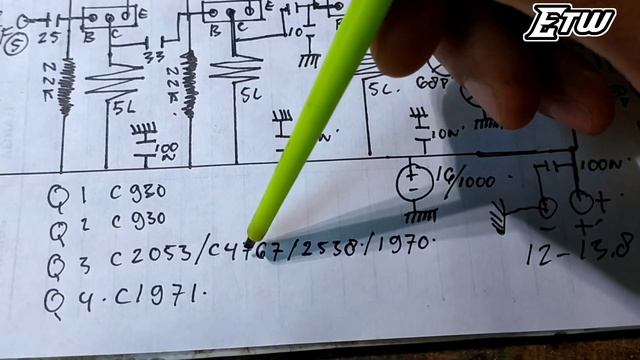 ETW
E
E
5
25
B
C
33
B
C
10
22K
5L
22K.
5L
5L.
68P
100
N
10N.
100N.
16/1000.
Q 1 C930
Q 2 C930
Q 3 C2053/C4767/2538/1970.
Q 4. C1971.
- +
12-13.8